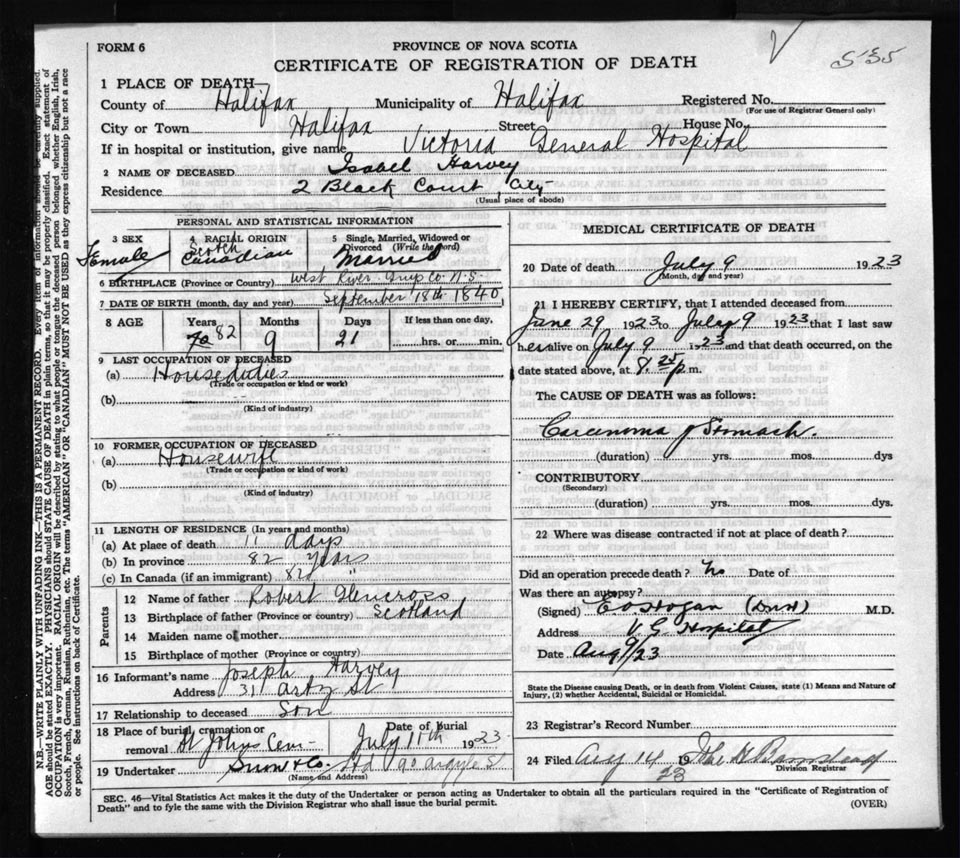 535
FORM 6
PROVINCE OF NOVA SCOTIA
CERTIFICATE OF REGISTRATION OF DEATH
1 PLACE OF DEATH
County of Halifax Municipality of Halifax Registered No.
(For use of Registrar General only)
City or Town Halifax Street House No.
If in hospital or institution, give name Victoria General Hospital
2 NAME OF DECEASED Isabel Harvey
Residence 2 Black Court, City
(Usual place of abode)
PERSONAL AND STATISTICAL INFORMATION
3 SEX 4 RACIAL ORIGIN 5 Single, Married, Widowed or Divorced (Write the word)
Female Scotch Canadian Married
6 BIRTHPLACE (Province or Country) West River N.S.
7 DATE OF BIRTH (month, day and year) September 18th 1840
8 AGE Years Months Days If less than one day,
82 9 21 hrs. or min.
9 LAST OCCUPATION OF DECEASED
(a) House duties
(Trade or occupation or kind or work)
(b)
(Kind of industry)
10 FORMER OCCUPATION OF DECEASED
(a) Housewife
(Trade or occupation or kind of work)
(b)
(Kind of industry)
11 LENGTH OF RESIDENCE (In years and months)
(a) At place of death 11 days
(b) In province 82 years
(c) In Canada (if an immigrant) 82 "
Parents
12 Name of father Robert Glencross
13 Birthplace of father (Province or country) Scotland
14 Maiden name of mother
15 Birthplace of mother (Province or country)
16 Informant's name Joseph Harvey
Address 31 Artz St
17 Relationship to deceased Son
18 Place of burial, cremation or removal St Johns Cem Date of burial July 11th 1923
19 Undertaker Snow & Co. Ltd 90 Argyle St
(Name and Address)
MEDICAL CERTIFICATE OF DEATH
20 Date of death July 9 1923
(Month, day and year)
21 I HEREBY CERTIFY, that I attended deceased from
June 29 1923 to July 9 1923 that I last saw
her alive on July 9 1923 and that death occurred, on the
date stated above, at 8.25 p.m.
The CAUSE OF DEATH was as follows:
Carcinoma of Stomach.
(duration) yrs. mos. dys
CONTRIBUTORY
(Secondary)
(duration) yrs. mos. dys.
22 Where was disease contracted if not at place of death?
Did an operation precede death? No Date of
Was there an autopsy?
(Signed) M.D.
Address V. G. Hospital
Date Aug 9/23
State the Disease causing Death, or in death from Violent Causes, state (1) Means and Nature of
Injury, (2) whether Accidental, Suicidal or Homicidal.
23 Registrar's Record Number
24 Filed Aug 14 1923
Division Registrar
SEC. 46—Vital Statistics Act makes it the duty of the Undertaker or person acting as Undertaker to obtain all the particulars required in the "Certificate of Registration of
Death" and to fyle the same with the Division Registrar who shall issue the burial permit.
(OVER)
N.B.—WRITE PLAINLY WITH UNFADING INK—THIS IS A PERMANENT RECORD. Every item of information should be carefully supplied.
AGE should be stated EXACTLY. PHYSICIANS should STATE CAUSE OF DEATH in plain terms, so that it may be properly classified. Exact statement of
OCCUPATION is very important. RACIAL ORIGIN will be described by stating to what people or tongue the deceased person belonged whether English, Irish,
Scotch, French, German, Russian, Ruthenian, etc. The terms "AMERICAN" OR "CANADIAN" MUST NOT BE USED as they express citizenship but not a race
or people. See instructions on back of Certificate.